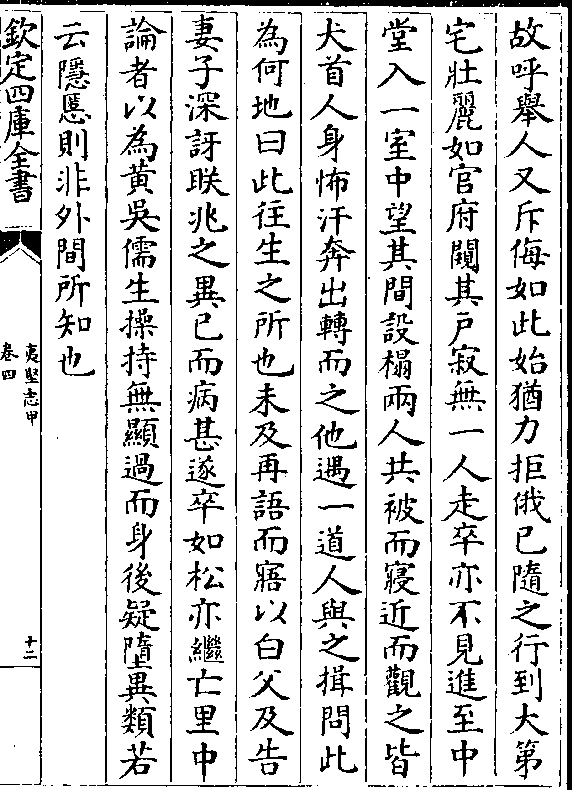 故呼舉人又斥侮如此始猶力拒俄已隨之行到大第
宅壯麗如官府闚其戸寂無一人走卒亦不見進至中
堂入一室中望其間設榻兩人共被而寢近而觀之皆
犬首人身怖汗奔出轉而之他遇一道人與之揖問此
為何地曰此往生之所也未及再語而寤以白父及告
妻子深訝眹兆之異已而病甚遂卒如松亦繼亡里中
論者以為黃吳儒生操持無顯過而身後疑墮異類若
云隱慝則非外間所知也
欽定四庫全書
夷堅志甲
卷四
十二